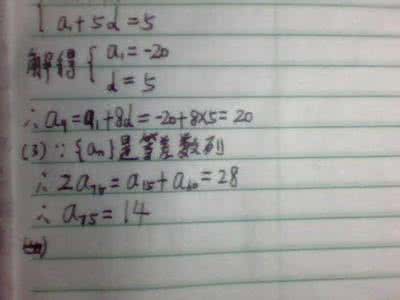 { a₁+5d=5
解得 { a₁=-20
d=5
∴a₉=a₁+8d=-20+8×5=20
(3)∵{aₙ}是等差数列
∴2a₇₅=a₁₅+a₆₀=28
∴a₇₅=14